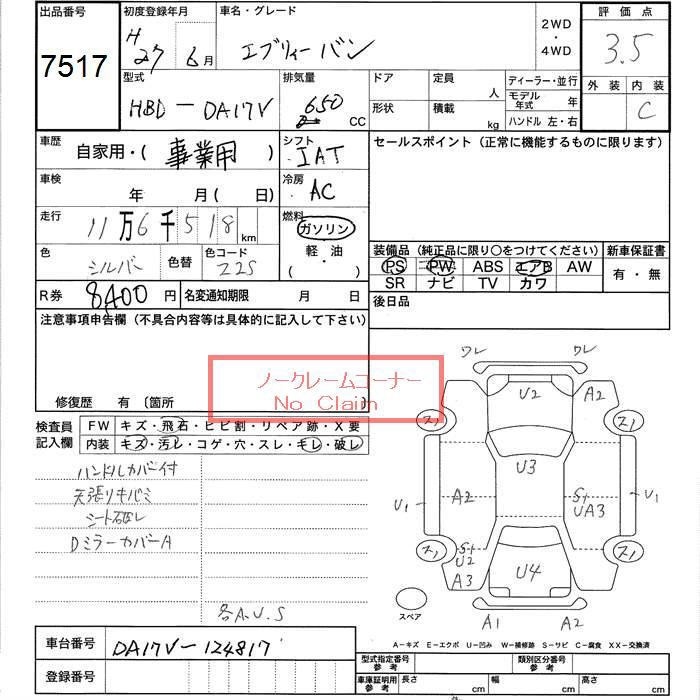 出品番号 初度登録年月 車名・グレード 2WD ・ 4WD 評価点
7517 H 27 6月 エブリィーバン 3.5
型式 排気量 ドア 定員 人 ディーラー・並行 外装 内装
HBD-DA17V 650 CC 形状 積載 kg モデル年式 年 C
ハンドル 左・右
車歴 自家用・( 事業用 ) シフト IAT セールスポイント (正常に機能するものに限ります)
車検 年 月 ( 日) 冷房 AC
走行 11万6千518 km 燃料 ガソリン
色 シルバー 色替 色コード Z2S 軽・油 ( ・ )
装備品 (純正品に限り○をつけてください) 新車保証書
PS PW ABS エアB AW 有・無
SR ナビ TV カワ
R券 8,400 円 名変通知期限 月 日 後日品
注意事項申告欄 (不具合内容等は具体的に記入して下さい)
ノークレームコーナー
No Claim
修復歴 有 〔箇所
検査員記入欄 FW キズ・飛石・ヒビ割・リペア跡・X要
内装 キズ・汚レ・コゲ・穴・スレ・キレ・破レ
ハンドルカバー付
天張リキバミ
シート破レ
DミラーカバーA
各A.U.S
ワレ ワレ
U2 A2
スノ スノ
U3
U1 A2 S1 UA3 U1
スノ S1 U2 A3 U4 スノ
スペア A1 A2
車台番号 DA17V-124817
登録番号
A-キズ E-エクボ U-凹み W-補修跡 S-サビ C-腐食 XX-交換済
型式指定番号 参考 類別区分番号 参考
車庫証明用 参考 長さ cm 幅 cm 高さ cm